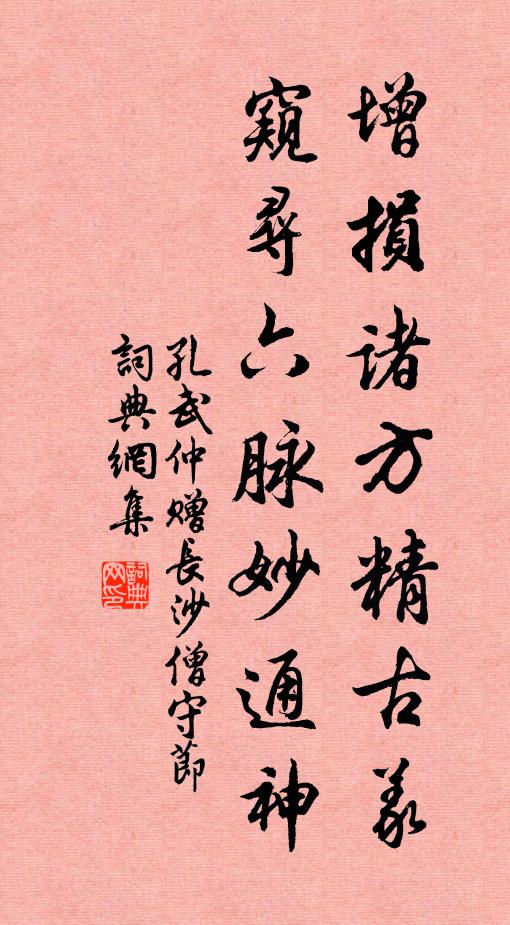 增損诸方精古义
窺尋六脉妙通神
孔武仲赠長沙僧守節
詞典網集
詞典网印